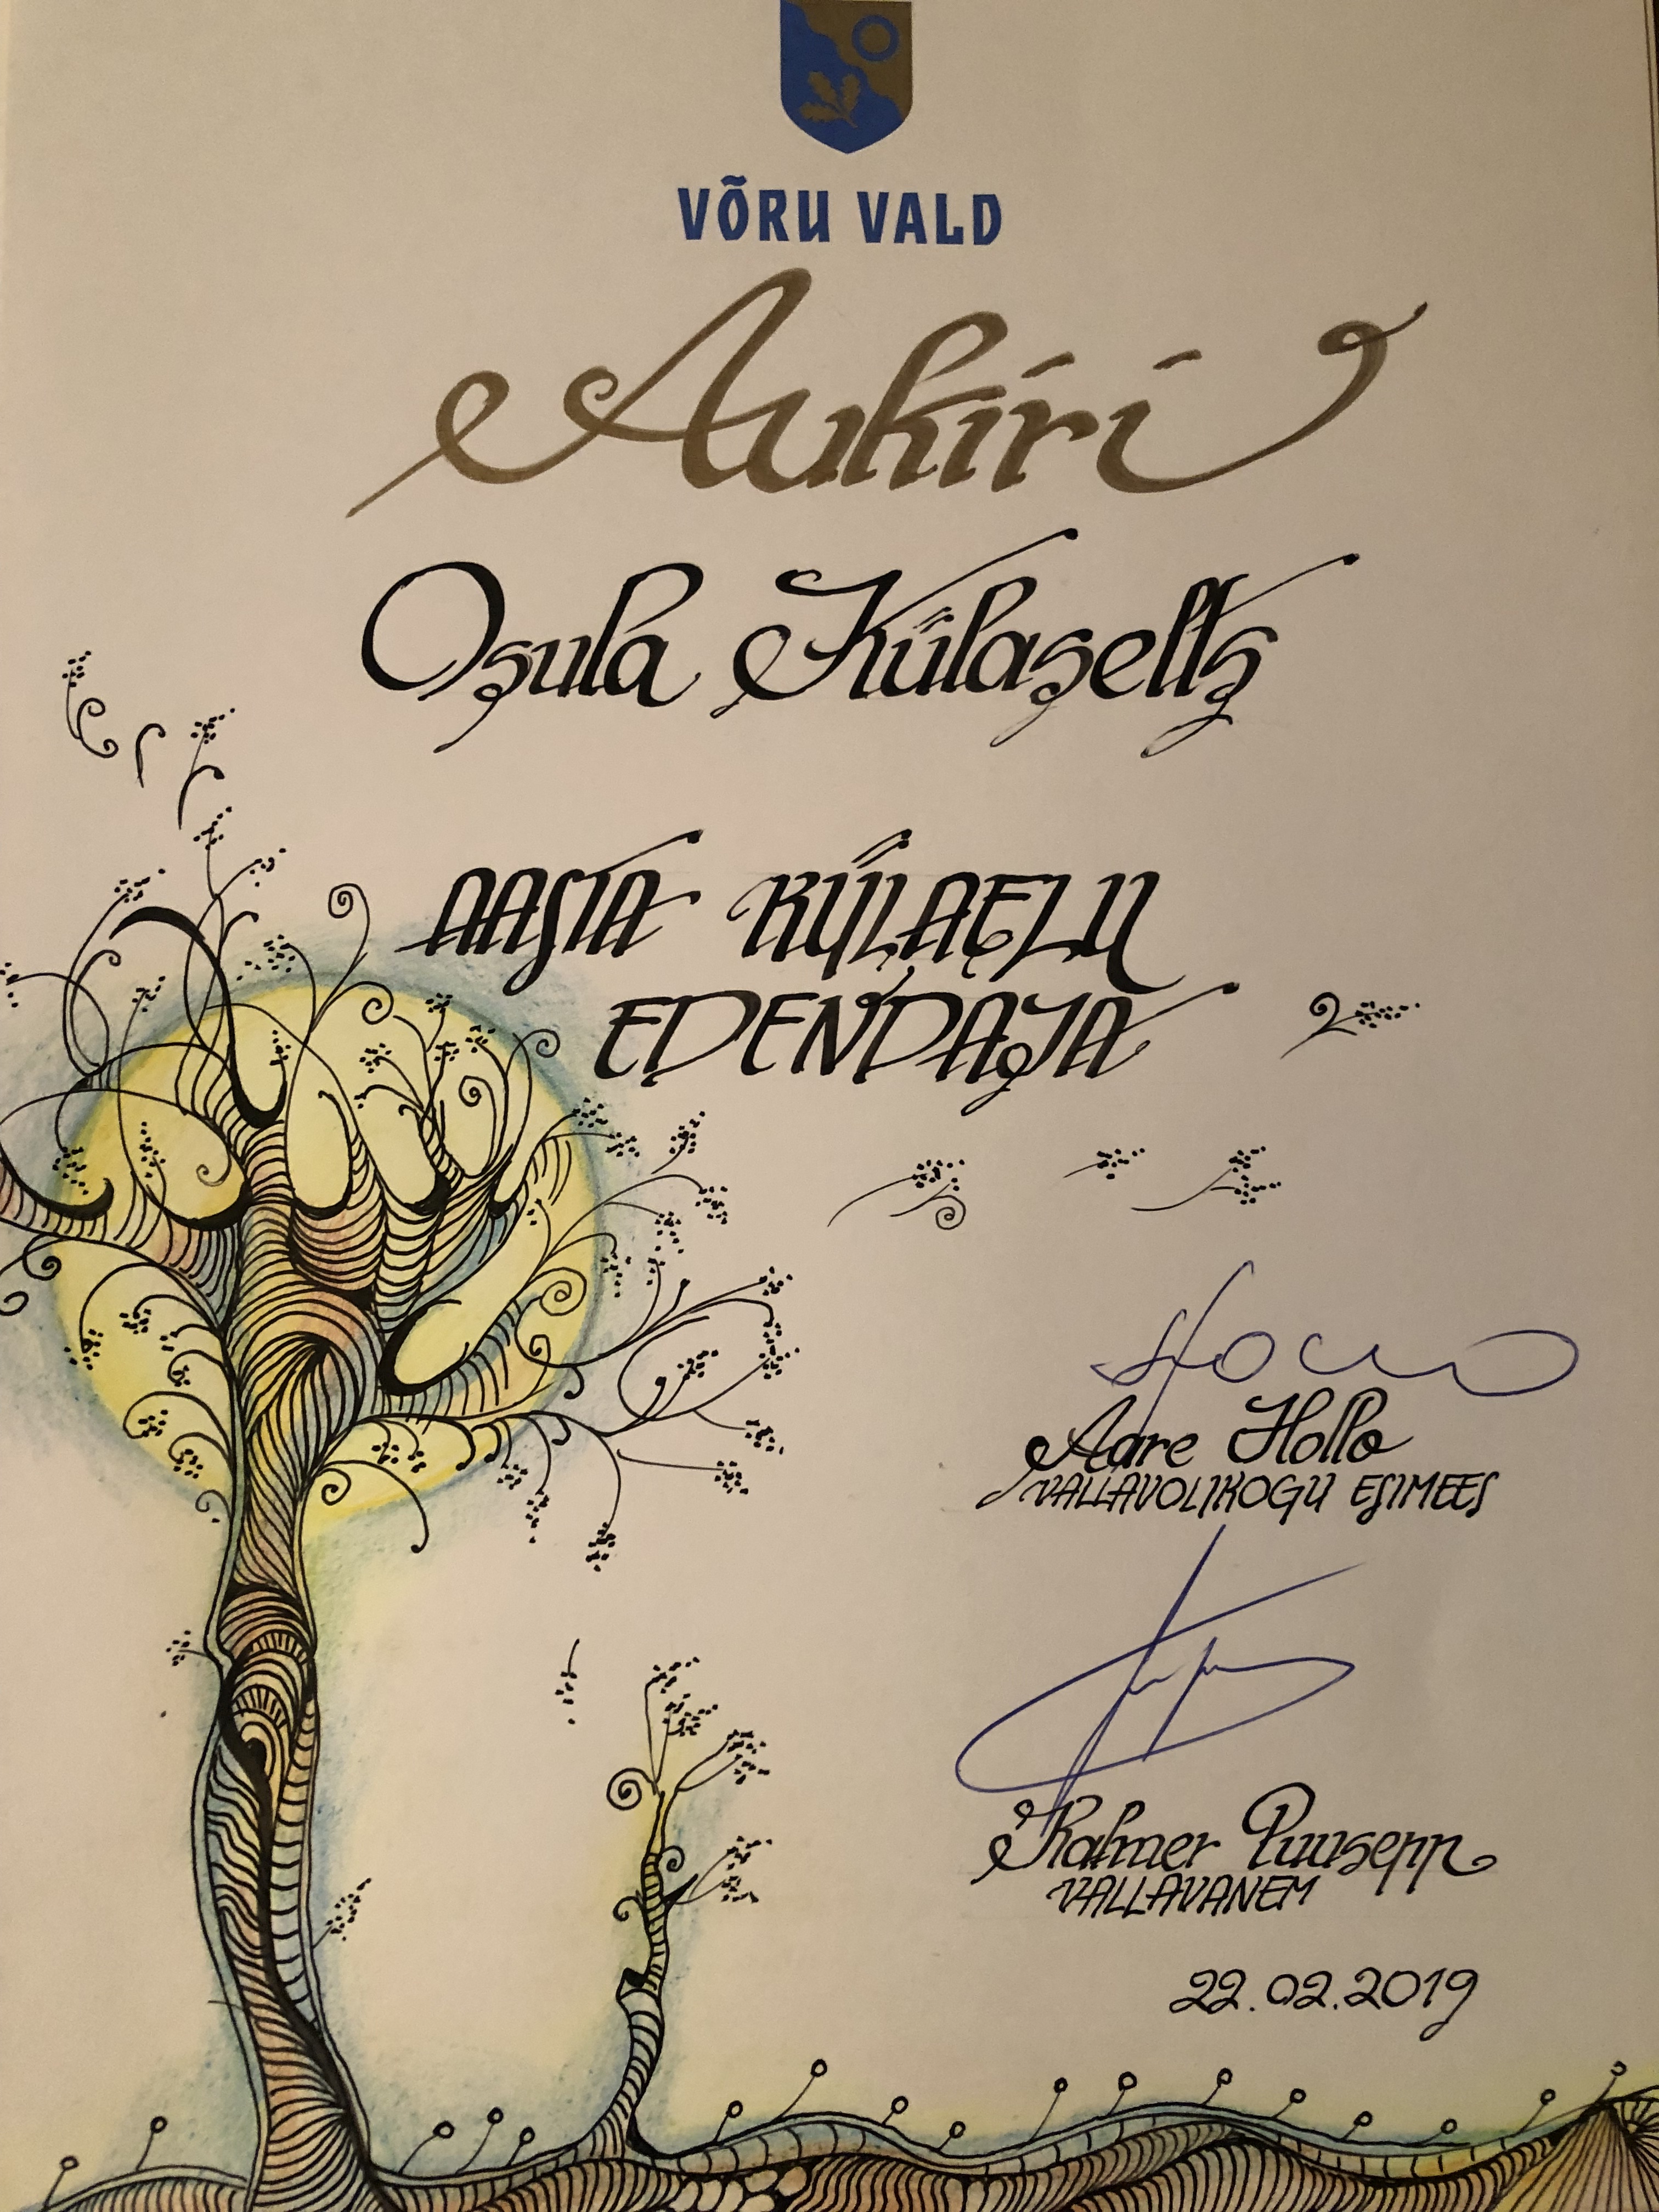 VÕRU VALD
Aukiri
Osula Külaselts
AASTA KÜLAELU
EDENDAJA
Aare Hollo
VALLAVOLIKOGU ESIMEES
Kalmer Puusepp
VALLAVANEM
22.02.2019